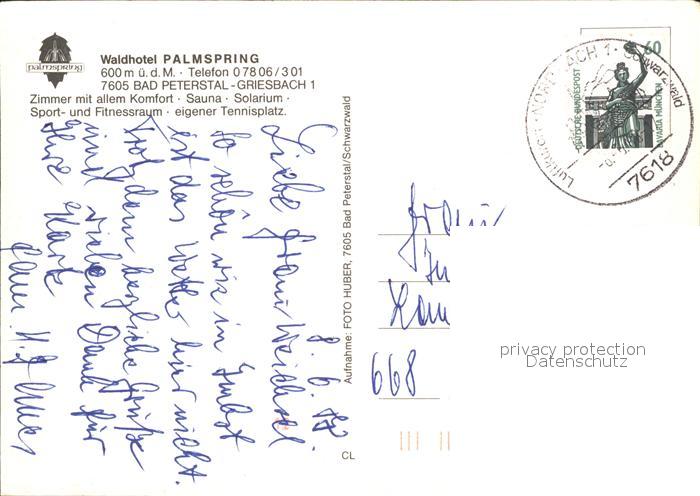 palmspring
Waldhotel PALMSPRING
600 m ü. d. M. · Telefon 0 78 06 / 3 01
7605 BAD PETERSTAL - GRIESBACH 1
Zimmer mit allem Komfort · Sauna · Solarium ·
Sport- und Fitnessraum · eigener Tennisplatz.
8. 6.
Liebe Frau
so schön wie in
ist das Wetter hier nicht.
Trotzdem herzliche Grüße
und vielen Dank für
Ihre Karte
Aufnahme: FOTO HUBER, 7605 Bad Peterstal/Schwarzwald
CL
60
DEUTSCHE BUNDESPOST
BAVARIA MÜNCHEN
Schwarzwald
7618
Frau
668
privacy protection
Datenschutz